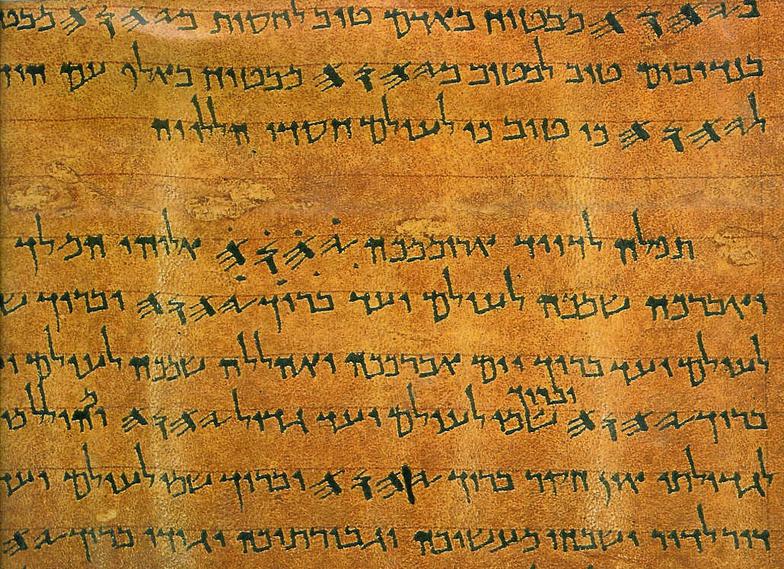 ב𐤉𐤄𐤅𐤄 מבטוח באדם טוב לחסות ב𐤉𐤄𐤅𐤄 מבטו
בנדיבים טוב לבטוח ב𐤉𐤄𐤅𐤄 מבטוח באלף עם הוד
ל𐤉𐤄𐤅𐤄 כי טוב כי לעולם חסדו הללויה
תפלה לדויד ארוממכה 𐤉𐤄𐤅𐤄 אלוהי המלך
ואברכה שמכה לעולם ועד ברוך 𐤉𐤄𐤅𐤄 וברוך ש
לעולם ועד ברוך יום אברככה ואהללה שמכה לעולם ו
ברוך 𐤉𐤄𐤅𐤄 וברוך שמו לעולם ועד גדול 𐤉𐤄𐤅𐤄 ומהולל מ
לגדולתו אין חקר ברוך 𐤉𐤄𐤅𐤄 וברוך שמו לעולם ועד
דור לדור ישבחו מעשיכה וגבורתיכה יגידו ברוך 𐤉𐤄